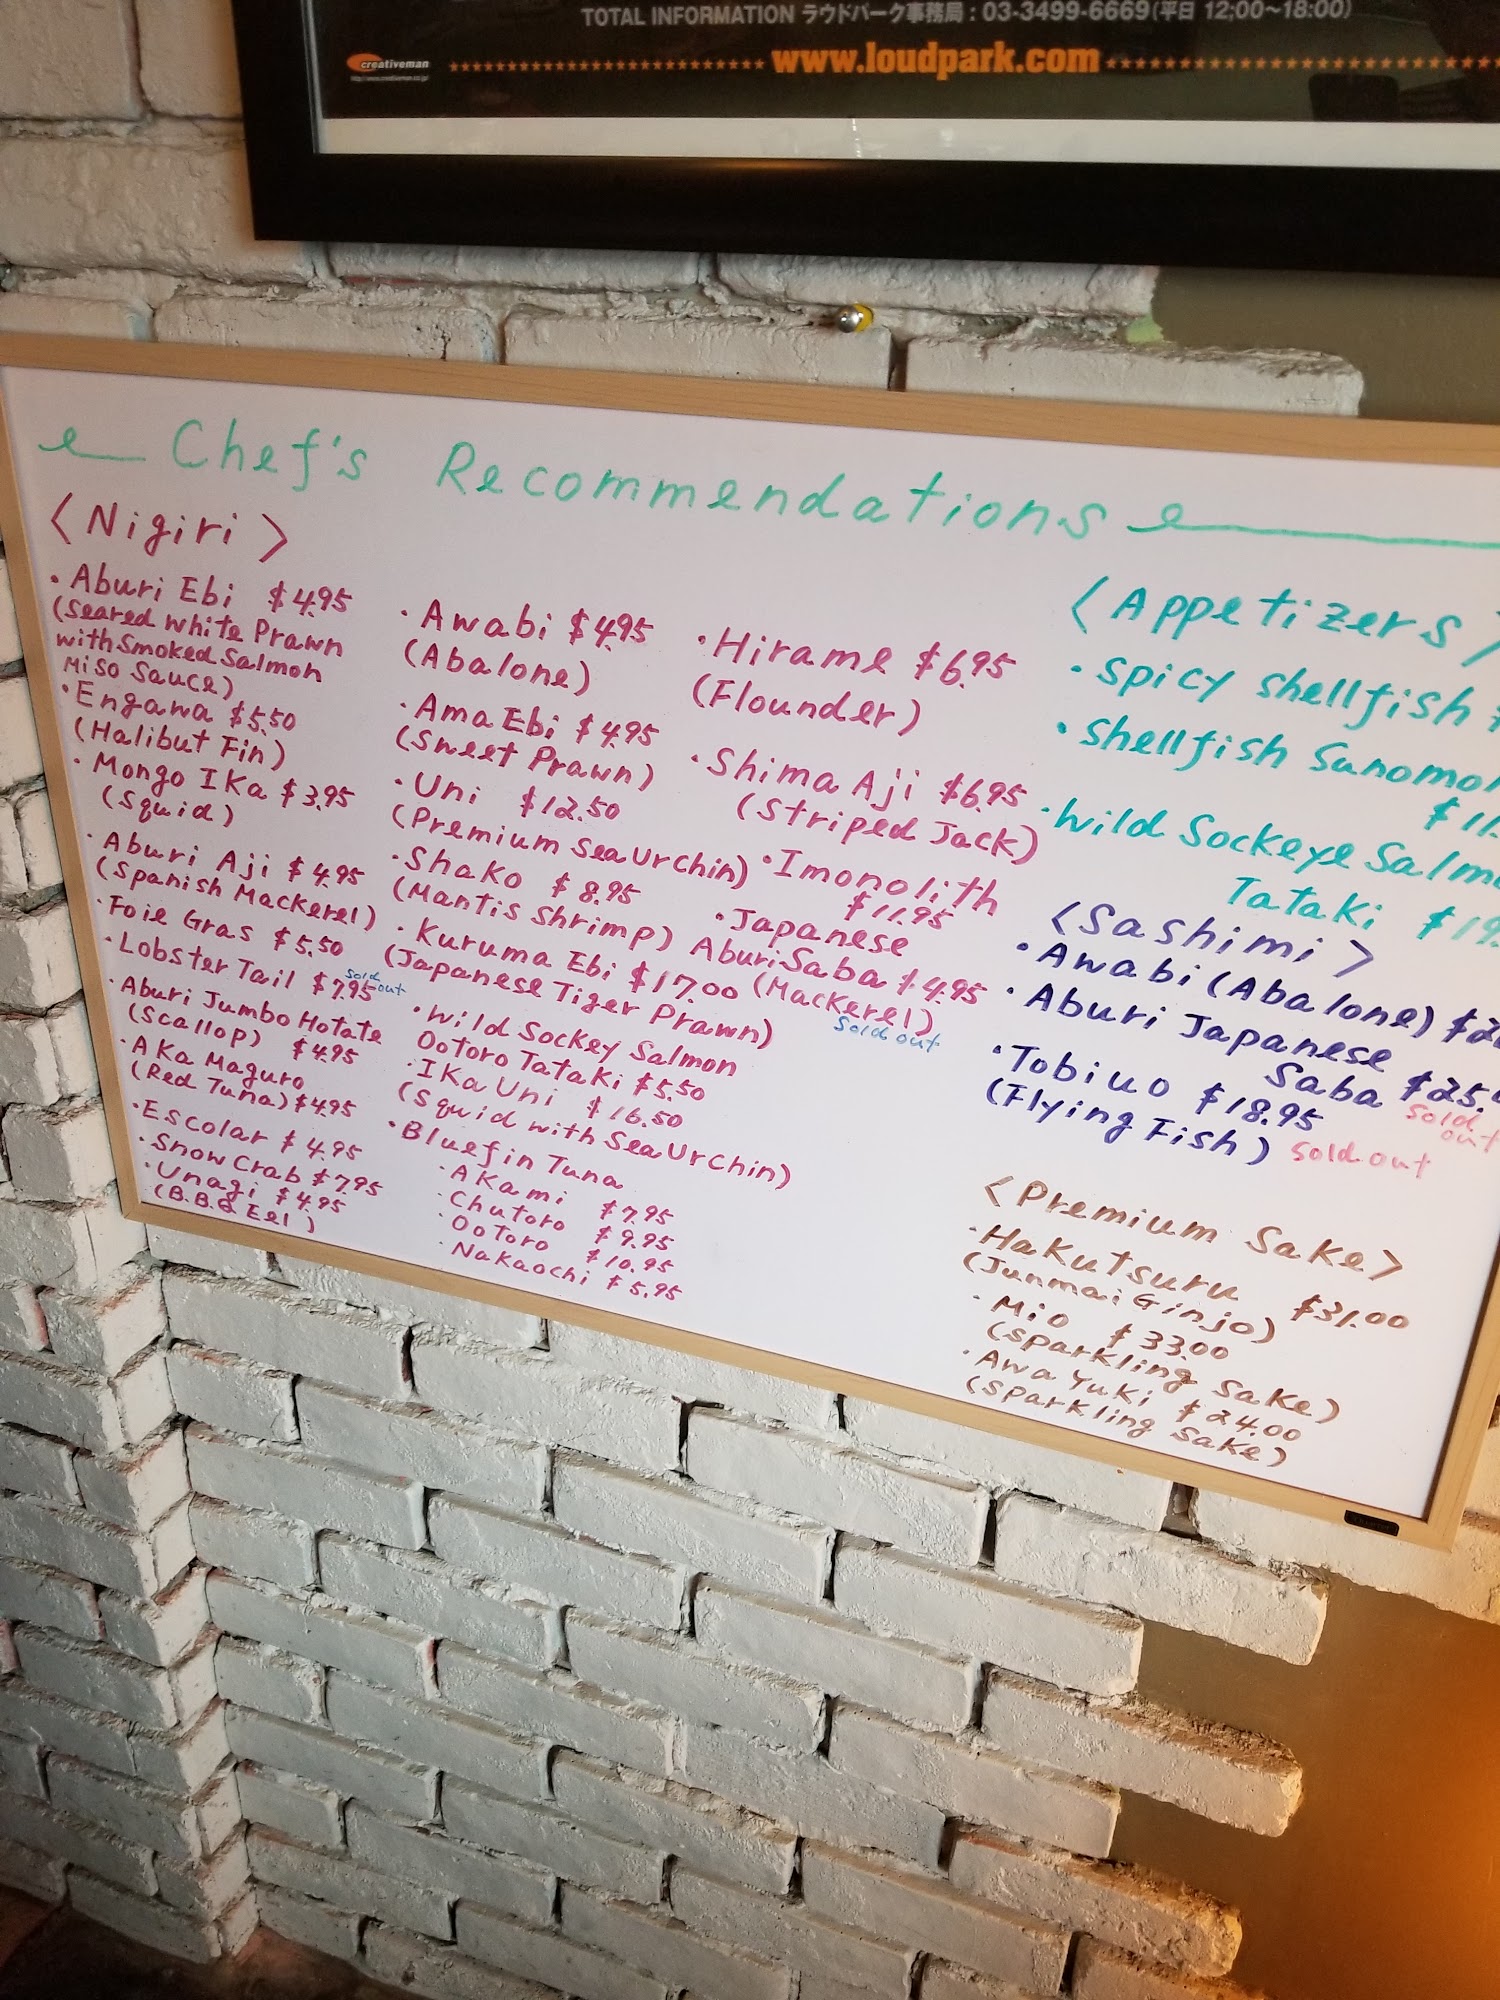 TOTAL INFORMATION ラウドパーク事務局 : 03-3499-6669(平日 12:00~18:00)
creativeman
www.loudpark.com
Chef's Recommendations
<Nigiri>
· Aburi Ebi $4.95
(Seared White Prawn
with Smoked Salmon
Miso Sauce)
· Engawa $5.50
(Halibut Fin)
· Mongo Ika $3.95
(Squid)
· Aburi Aji $4.95
(Spanish Mackerel)
· Foie Gras $5.50
· Lobster Tail $7.95 sold out
· Aburi Jumbo Hotate
(Scallop) $4.95
· Aka Maguro
(Red Tuna) $4.95
· Escolar $4.95
· Snow Crab $7.95
· Unagi $4.95
(B.B.Q Eel)
· Awabi $4.95
(Abalone)
· Ama Ebi $4.95
(Sweet Prawn)
· Uni $12.50
(Premium Sea Urchin)
· Shako $8.95
(Mantis Shrimp)
· Kuruma Ebi $17.00
(Japanese Tiger Prawn)
· Wild Sockey Salmon
Ootoro Tataki $5.50
· Ika Uni $16.50
(Squid with Sea Urchin)
· Bluefin Tuna
· Akami $7.95
· Chutoro $9.95
· Ootoro $10.95
· Nakaochi $5.95
· Hirame $6.95
(Flounder)
· Shima Aji $6.95
(Striped Jack)
· Imonolith
$11.95
· Japanese
Aburi Saba $4.95
(Mackerel)
sold out
<Appetizers>
· Spicy Shellfish
· Shellfish Sunomo
· Wild Sockeye Salm
Tataki
<Sashimi>
· Awabi (Abalone)
· Aburi Japanese
Saba $25.
sold
out
· Tobiuo $18.95
(Flying Fish) sold out
<Premium Sake>
· Hakutsuru $31.00
(Junmai Ginjo)
· Mio $33.00
(Sparkling Sake)
· Awa Yuki $24.00
(Sparkling Sake)